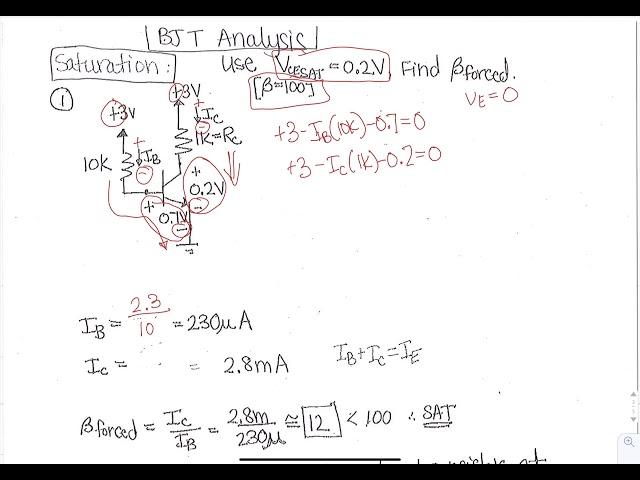 BJT Analysis
Saturation: Use VCESAT=0.2V, Find βforced.
[β=100]
VE=0
① +3V +3V
IC
1K=RC
10K IB
+ 0.2V −
+ 0.7V −
+3-IB(10K)-0.7=0
+3-IC(1K)-0.2=0
IB = 2.3/10 = 230μA
IC = = 2.8mA
IB+IC=IE
βforced = IC/IB = 2.8m/230μ ≅ 12 < 100 ∴ SAT